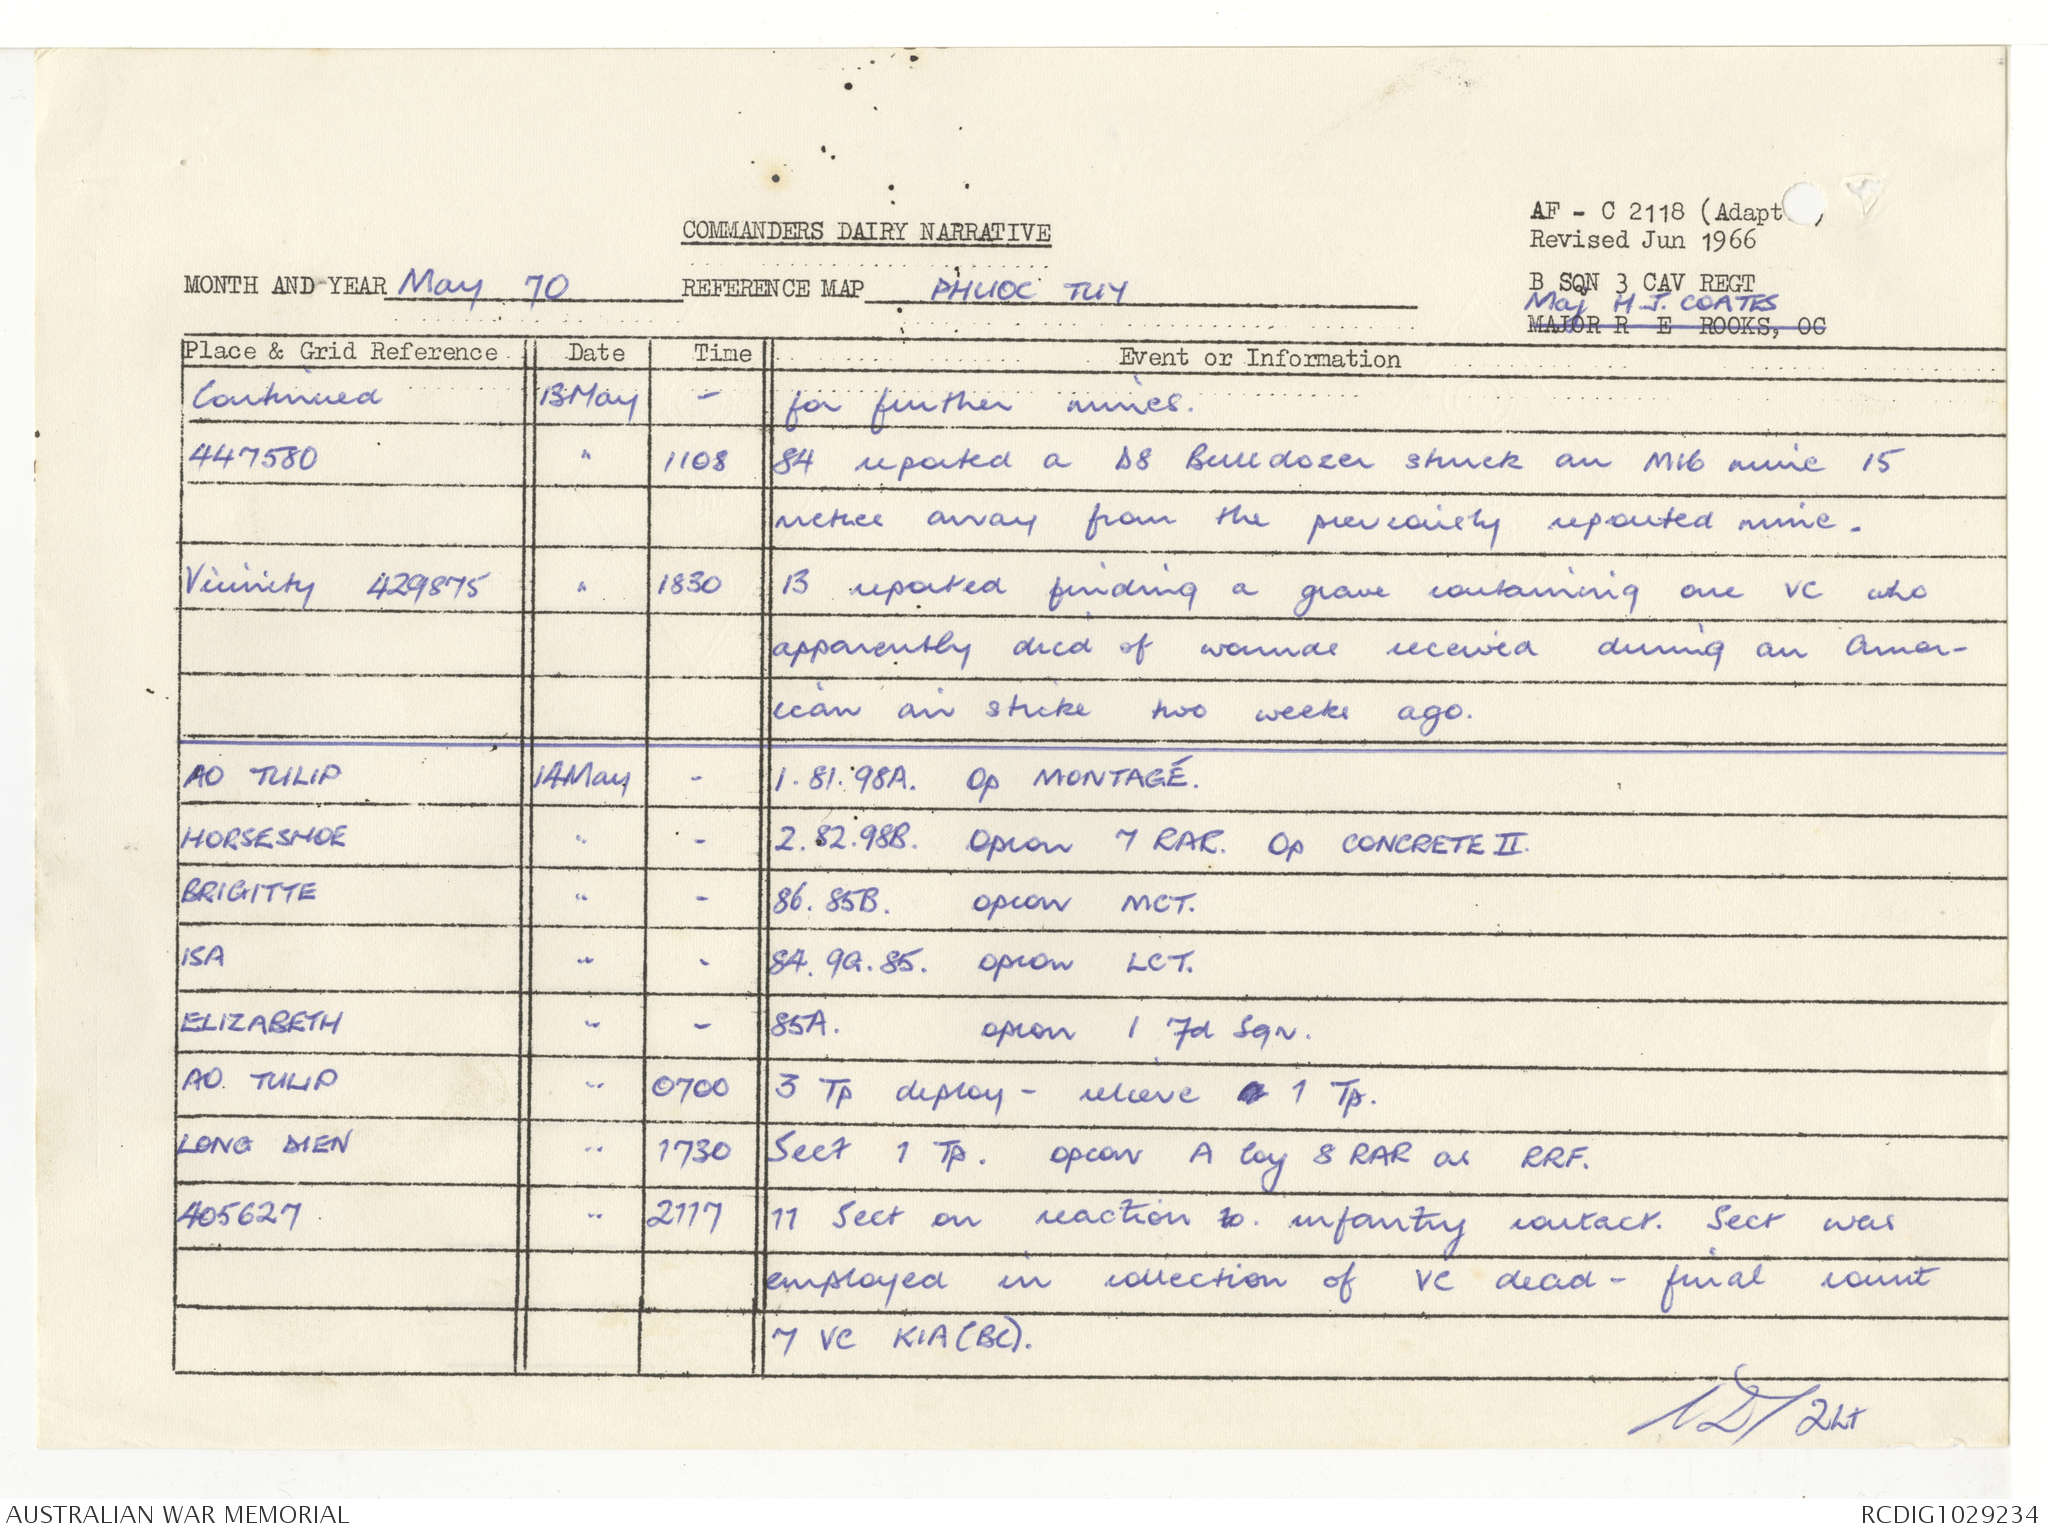 AF - C 2118 (Adapt
Revised Jun 1966
COMMANDERS DAIRY NARRATIVE
MONTH AND YEAR May 70 REFERENCE MAP PHUOC TUY
B SQN 3 CAV REGT
Maj H J. COATES
MAJOR R E ROOKS, OC
Place & Grid Reference Date Time Event or Information
Continued 13 May - for further mines.
447580 " 1108 84 reported a D8 Bulldozer struck an M16 mine 15
metres away from the previously reported mine.
Vicinity 429875 " 1830 13 reported finding a grave containing one VC who
apparently died of wounds received during an Amer-
ican air strike two weeks ago.
AO TULIP 14 May - 1. 81. 98A. Op MONTAGÉ.
HORSESHOE " - 2. 82. 98B. Opcon 7 RAR. Op CONCRETE II.
BRIGITTE " - 86. 85B. opcon MCT.
ISA " - 84. 9G. 85. opcon LCT.
ELIZABETH " - 85A. opcon 1 Fd Sqn.
AO TULIP " 0700 3 Tp deploy - relieve 1 Tp.
LONG DIEN " 1730 Sect 1 Tp. opcon A Coy 8 RAR as RRF.
405627 " 2117 11 Sect on reaction to. infantry contact. Sect was
employed in collection of VC dead - final count
7 VC KIA (BC).
2Lt
AUSTRALIAN WAR MEMORIAL RCDIG1029234